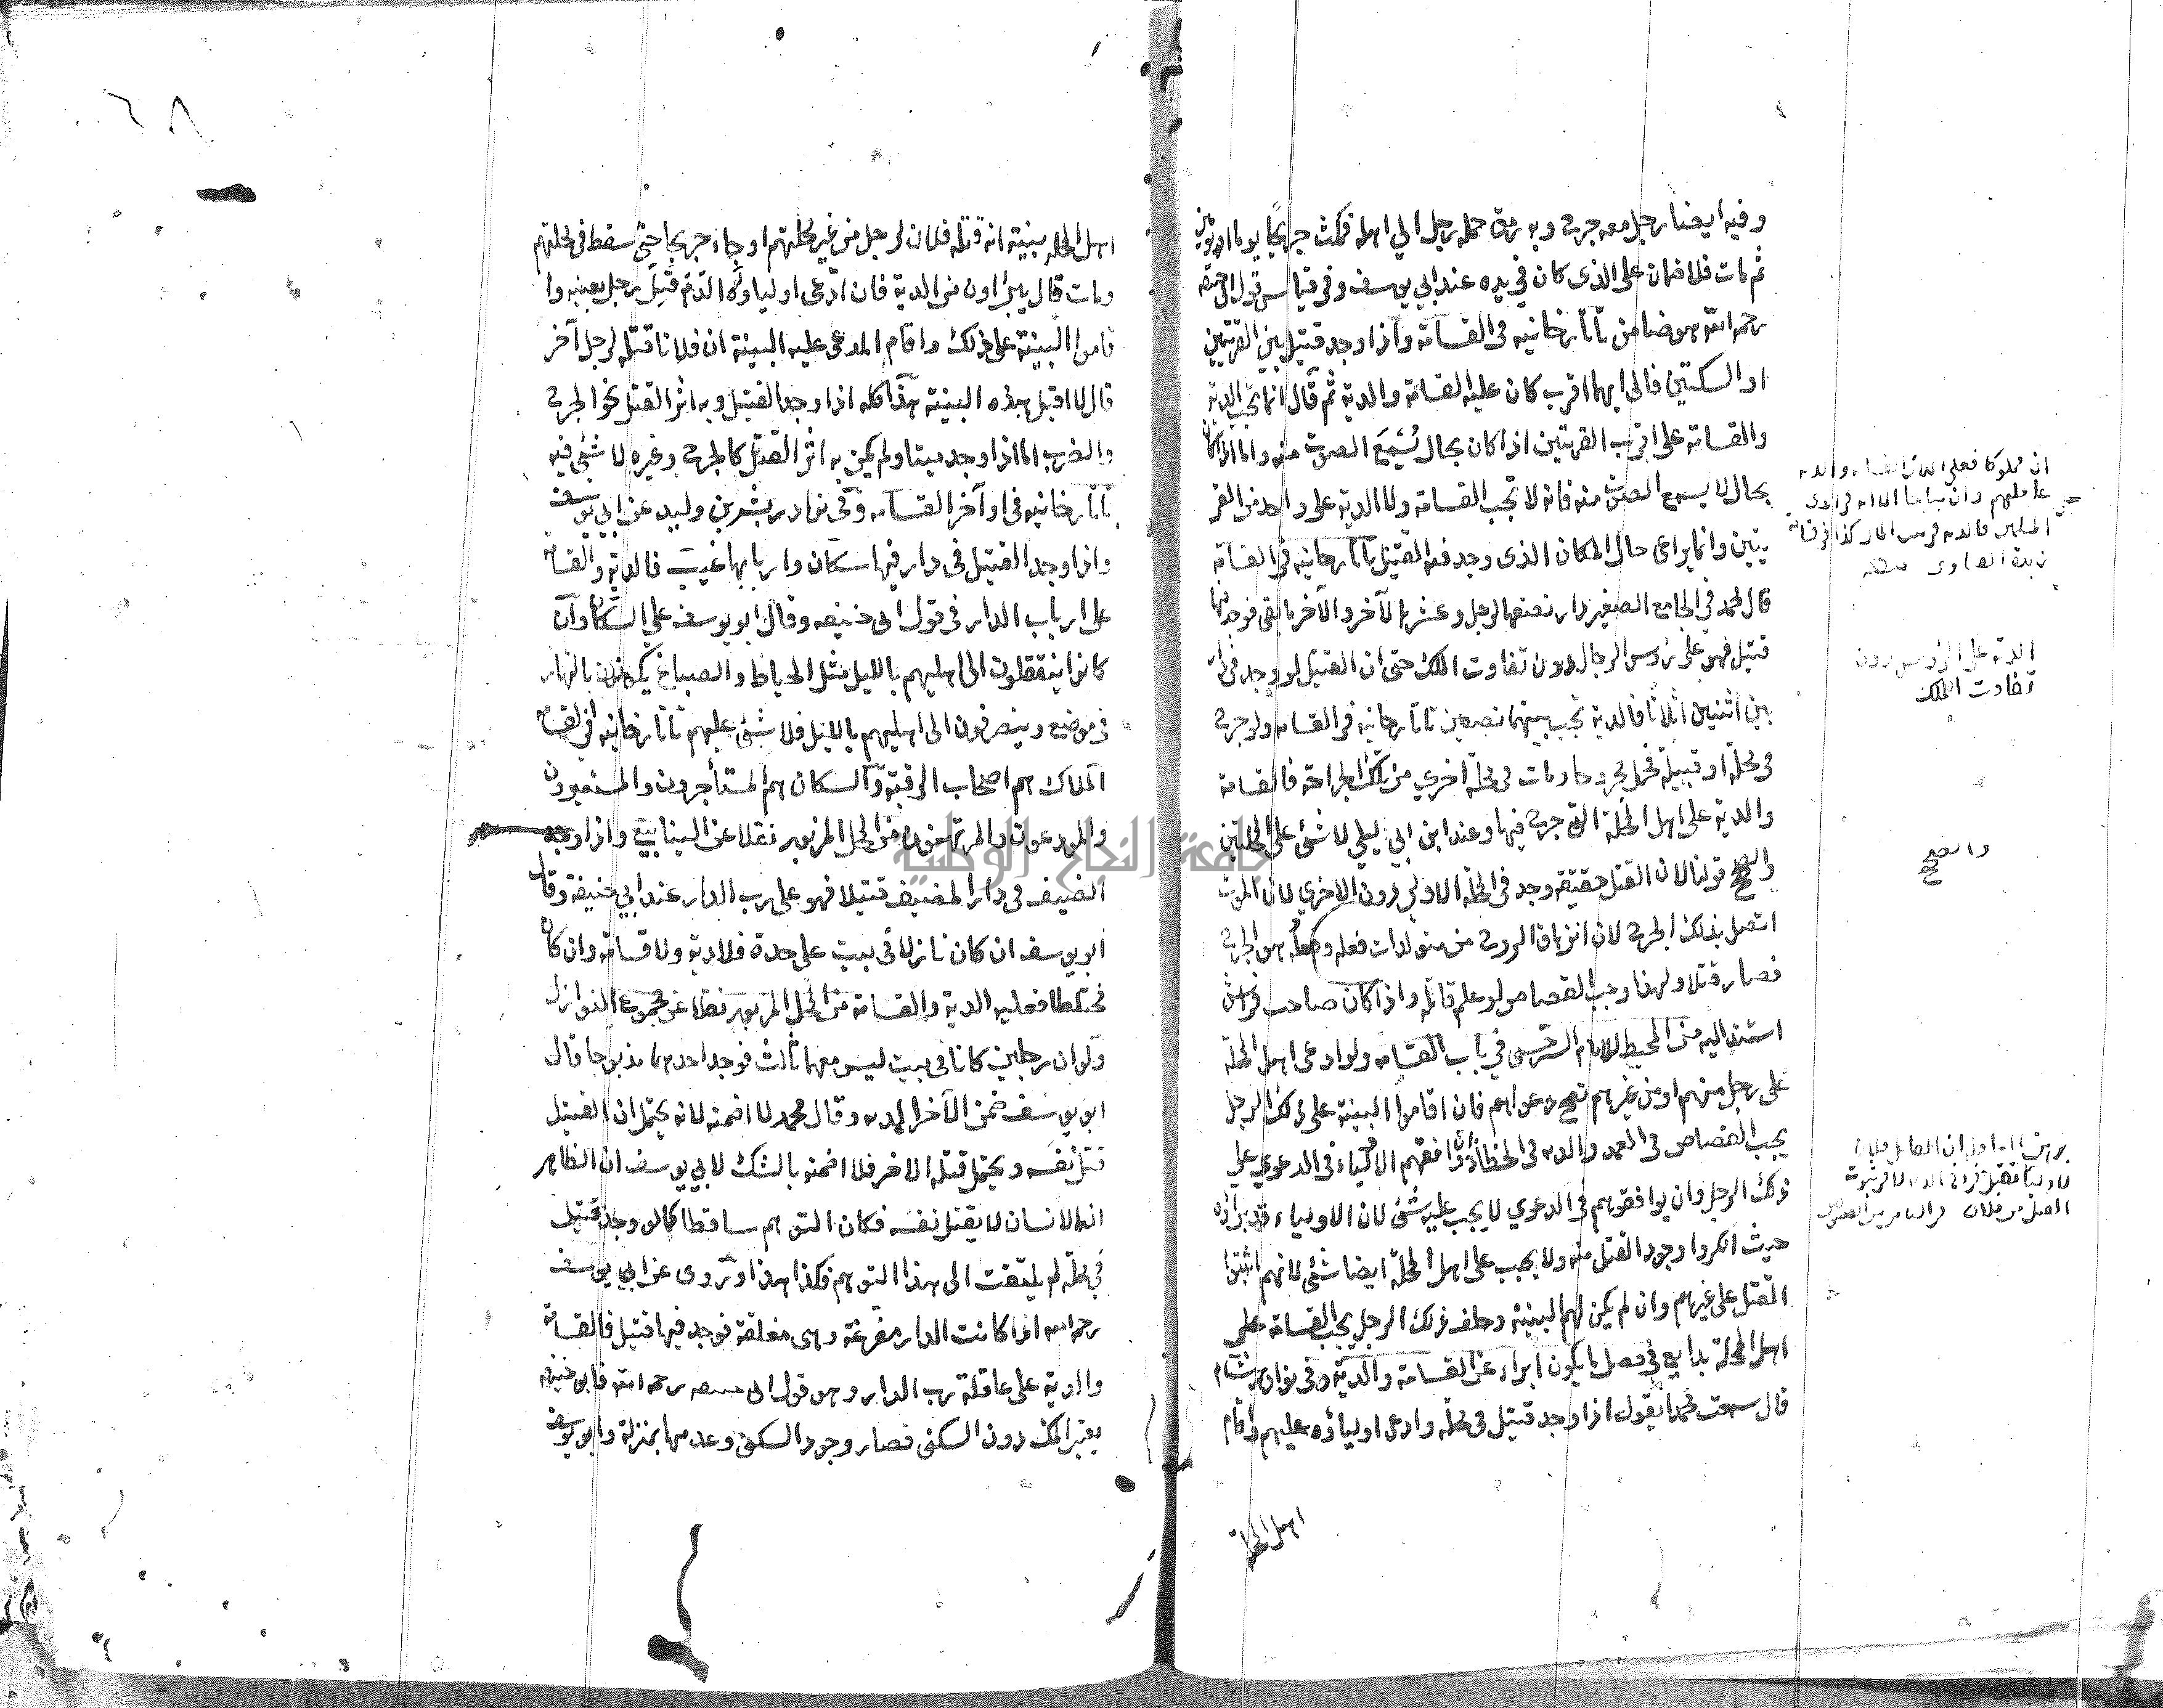 وفيه ايضا رجل معه جرح وبه رمق حمله رجل الي اهله فمكث جريحا يوما او يومين
ثم مات فلا ضمان على الذى كان في يده عند ابي يوسف وفى قياس قول ابى حنيفة
رحمه الله هو ضامن تاتارخانيه فى القسامة واذا وجد قتيل بين القريتين
او السكتين فالى ايهما اقرب كان عليه القسامة والدية ثم قال انما يجب الدية
والقسامة على اقرب القريتين اذا كان بحال يُسْمَعَ الصوت منه واما اذا كان
بحال لا يسمع الصوت منه فانه لا تجب القسامة ولا الدية على واحد من القر
يتين وانما يراعى حال المكان الذى وجد فيه القتيل تاتارخانيه فى القسامة
قال محمد في الجامع الصغير دار نصفها لرجل وعشرها لآخر والآخر ما بقى فوجد فيها
قتيل فهو على رؤس الرجال دون تفاوت الملك حتى ان القتيل لو وجد فى دار
بين اثنين اثلاثا فالدية تجب بينهما نصفين تاتارخانيه فى القسامه ولو جرح
فى محلة او قبيلة فحمل مجروحا ومات فى محلة اخري من تلك الجراحة فالقسامة
والدية على اهل المحلة التى جرح فيها وعند ابن ابي ليلي لا شئ على المحلتين
والصحيح قولنا لان القتل حقيقة وجد فى المحلة الاولى دون الاخري لان الموت
اتصل بذلك الجرح لان انزهاق الروح من متولدات فعله وهو الجرح
فصار قتلا ولهذا وجب القصاص لو علم قاتله واذا كان صاحب فراش
استند اليه من المحيط للامام السرخسى في باب القسامه ولو ادعى اهل المحلة
على رجل منهم او من غيرهم تصح دعواهم فان اقاموا البينة على ذلك الرجل
يجب القصاص فى العمد والديه فى الخطأ ان وافقهم الاولياء فى الدعوي علي
ذلك الرجل وان لم يوافقوهم فى الدعوي لا يجب عليه شئ لان الاولياء قد ابراؤه
حيث انكروا وجود القتل منه ولا يجب على اهل المحلة ايضا شئ لانهم اثبتوا
القتل على غيرهم وان لم يكن لهم البينة وحلف ذلك الرجل يجب القسامة علي
اهل المحلة بدايع في فصل ما يكون ابراء عن القسامة والدية وفى نوادر هشام
قال سمعت محمدا يقول اذا وجد قتيل فى محلة وادعى اولياؤه عليهم واقام
اهل المحلة
ان مملوكا فعلى الملاك القسامه والديه
الدية على الرؤس دون
تفاوت الملك
والصحيح
٦٨
اهل المحلة بينية انه قتله فلان لرجل من غير محلتهم او جاء جريحا حتى سقط فى محلتهم
ومات قال يبراون من الدية فان ادّعى اولياؤه الدّم قبل رجل بعينه وا
قاموا البينة على ذلك واقام المدعى عليه البينة ان فلانا قتله لرجل آخر
قال لا اقبل هذه البينة هذا كله اذا وجد القتيل وبه اثر القتل نحو الجرح
والضرب اما اذا وجد ميتا ولم يكن به اثر القتل كالجرح وغيره لا شئ فيه
تاتارخانيه فى اواخر القسامه وفى نوادر بشر بن وليد عن ابي يوسف
واذا وجد القتيل فى دار فيها سكان واربابها غيب فالدية والقسامة
على ارباب الدار فى قول ابى حنيفه وقال ابو يوسف على السكان وان
كانوا ينتقلون الى اهليهم بالليل مثل الخياط والصباغ يكونون بالنهار
فى موضع وينصرفون الى اهليهم بالليل فلا شئ عليهم تاتارخانيه فى القسامة
الملاك هم اصحاب الرقبة والسكان هم المستأجرون والمستعيرون
والمودعون والمرتهنون من المحل المزبور نقلا عن الينابيع واذا وجد
الضيف فى دار المضيف قتيلا فهو على رب الدار عند ابي حنيفة وقال
ابو يوسف ان كان نازلا فى بيت على حدة فلا دية ولا قسامة وان كان
مختلطا فعليه الدية والقسامة من المحل المزبور نقلا عن مجموع النوازل
ولو ان رجلين كانا فى بيت ليس معهما ثالث فوجد احدهما مذبوحا قال
ابو يوسف ضمن الآخر الديه وقال محمد لا اضمنه لانه يحتمل ان القتيل
قتل نفسه ويحتمل قتله الاخر فلا اضمنه بالشك لابي يوسف ان الظاهر
ان الانسان لا يقتل نفسه فكان التوهم ساقطا كما لو وجد قتيل
في محلة لم يلتفت الى هذا التوهم فكذا هذا وروى عن ابي يوسف
رحمه الله اذا كانت الدار مفرغة وهى مغلقة فوجد فيها قتيل فالقسامة
والدية على عاقلة رب الدار وهو قول ابى حنيفه رحمه الله فابو حنيفه
يعتبر الملك دون السكنى فصار وجود السكنى وعدمها بمنزلة وابو يوسف
جامعة النجاح الوطنية